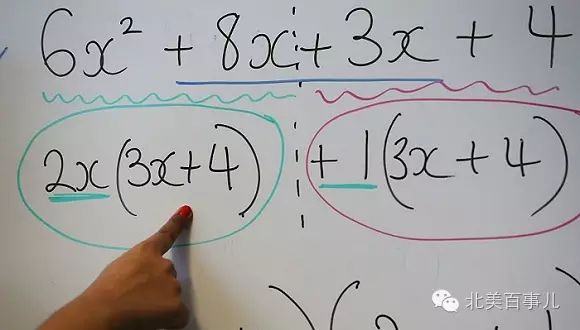 6x² + 8x + 3x + 4
2x(3x+4) + 1(3x + 4)
北美百事儿